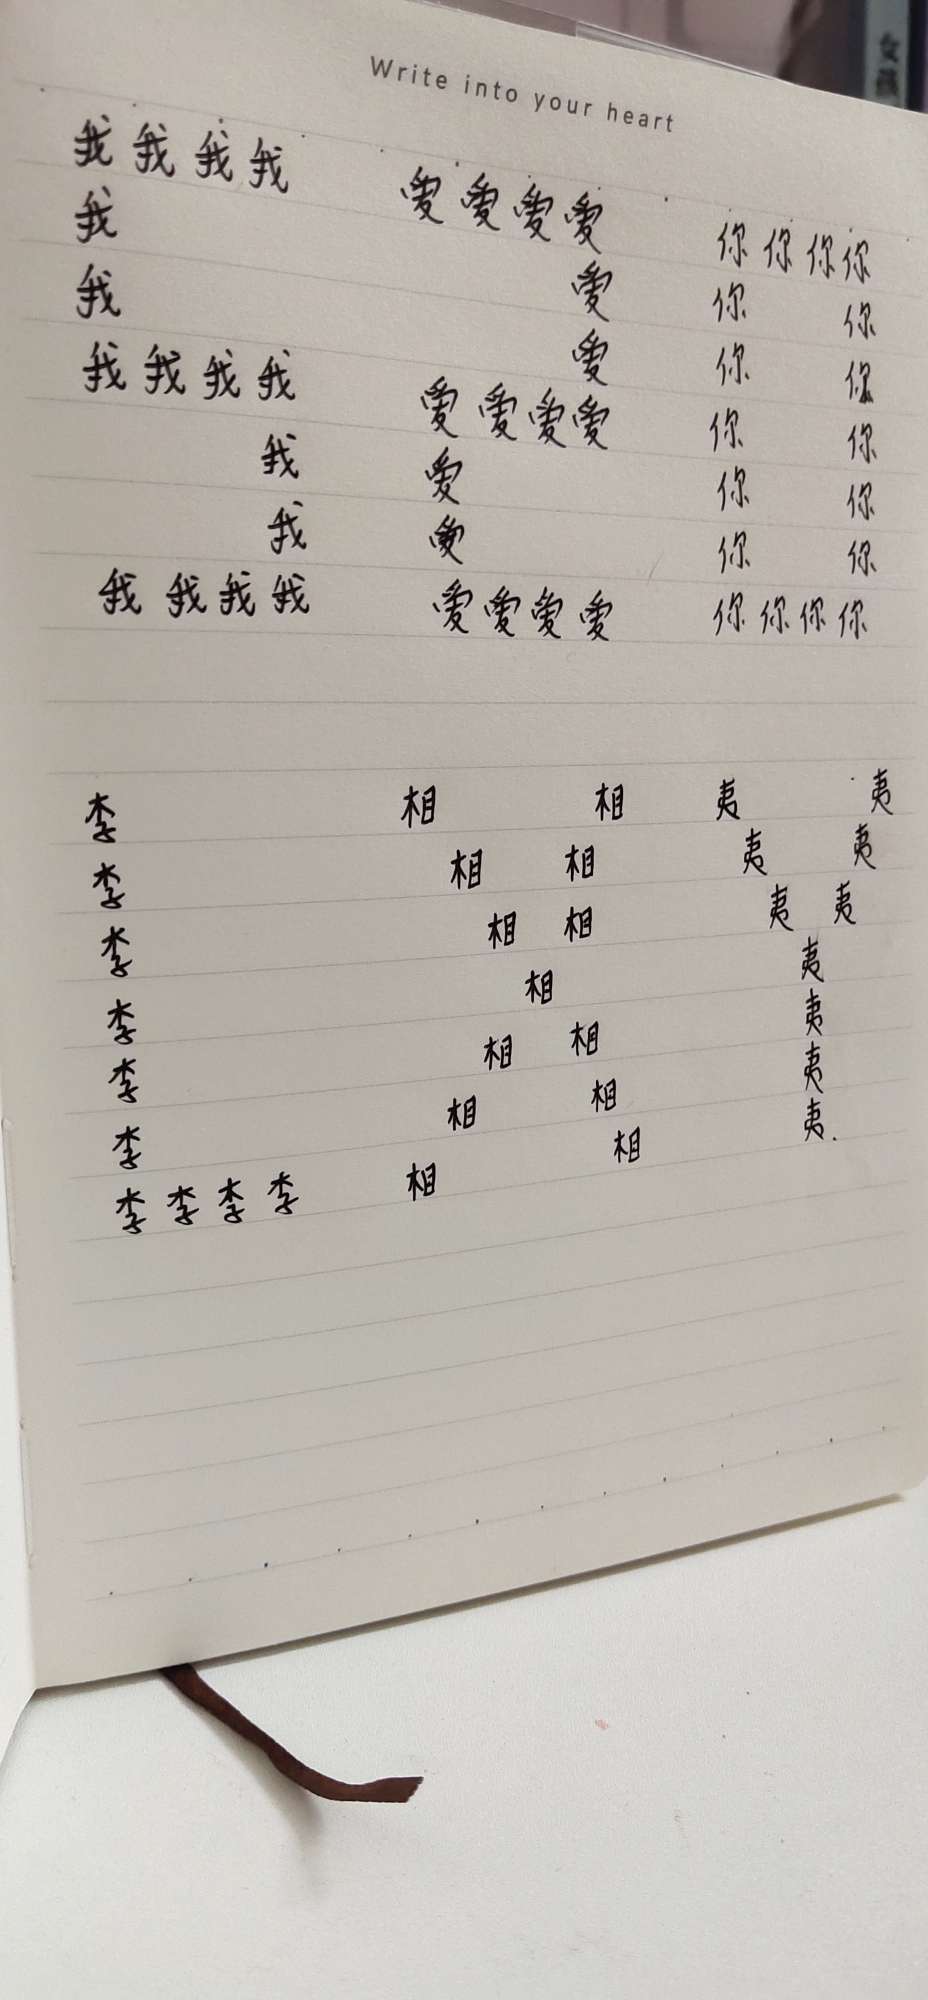 Write into your heart
我 我 我 我 爱 爱 爱 爱 你 你 你 你
我 爱 你 你
我 爱 你 你
我 我 我 我 爱 爱 爱 爱 你 你
我 爱 你 你
我 爱 你 你
我 我 我 我 爱 爱 爱 爱 你 你 你 你
李 相 相 夷 夷
李 相 相 夷 夷
李 相 相 夷 夷
李 相 夷
李 相 相 夷
李 相 相 夷
李 李 李 李 相 相 夷.